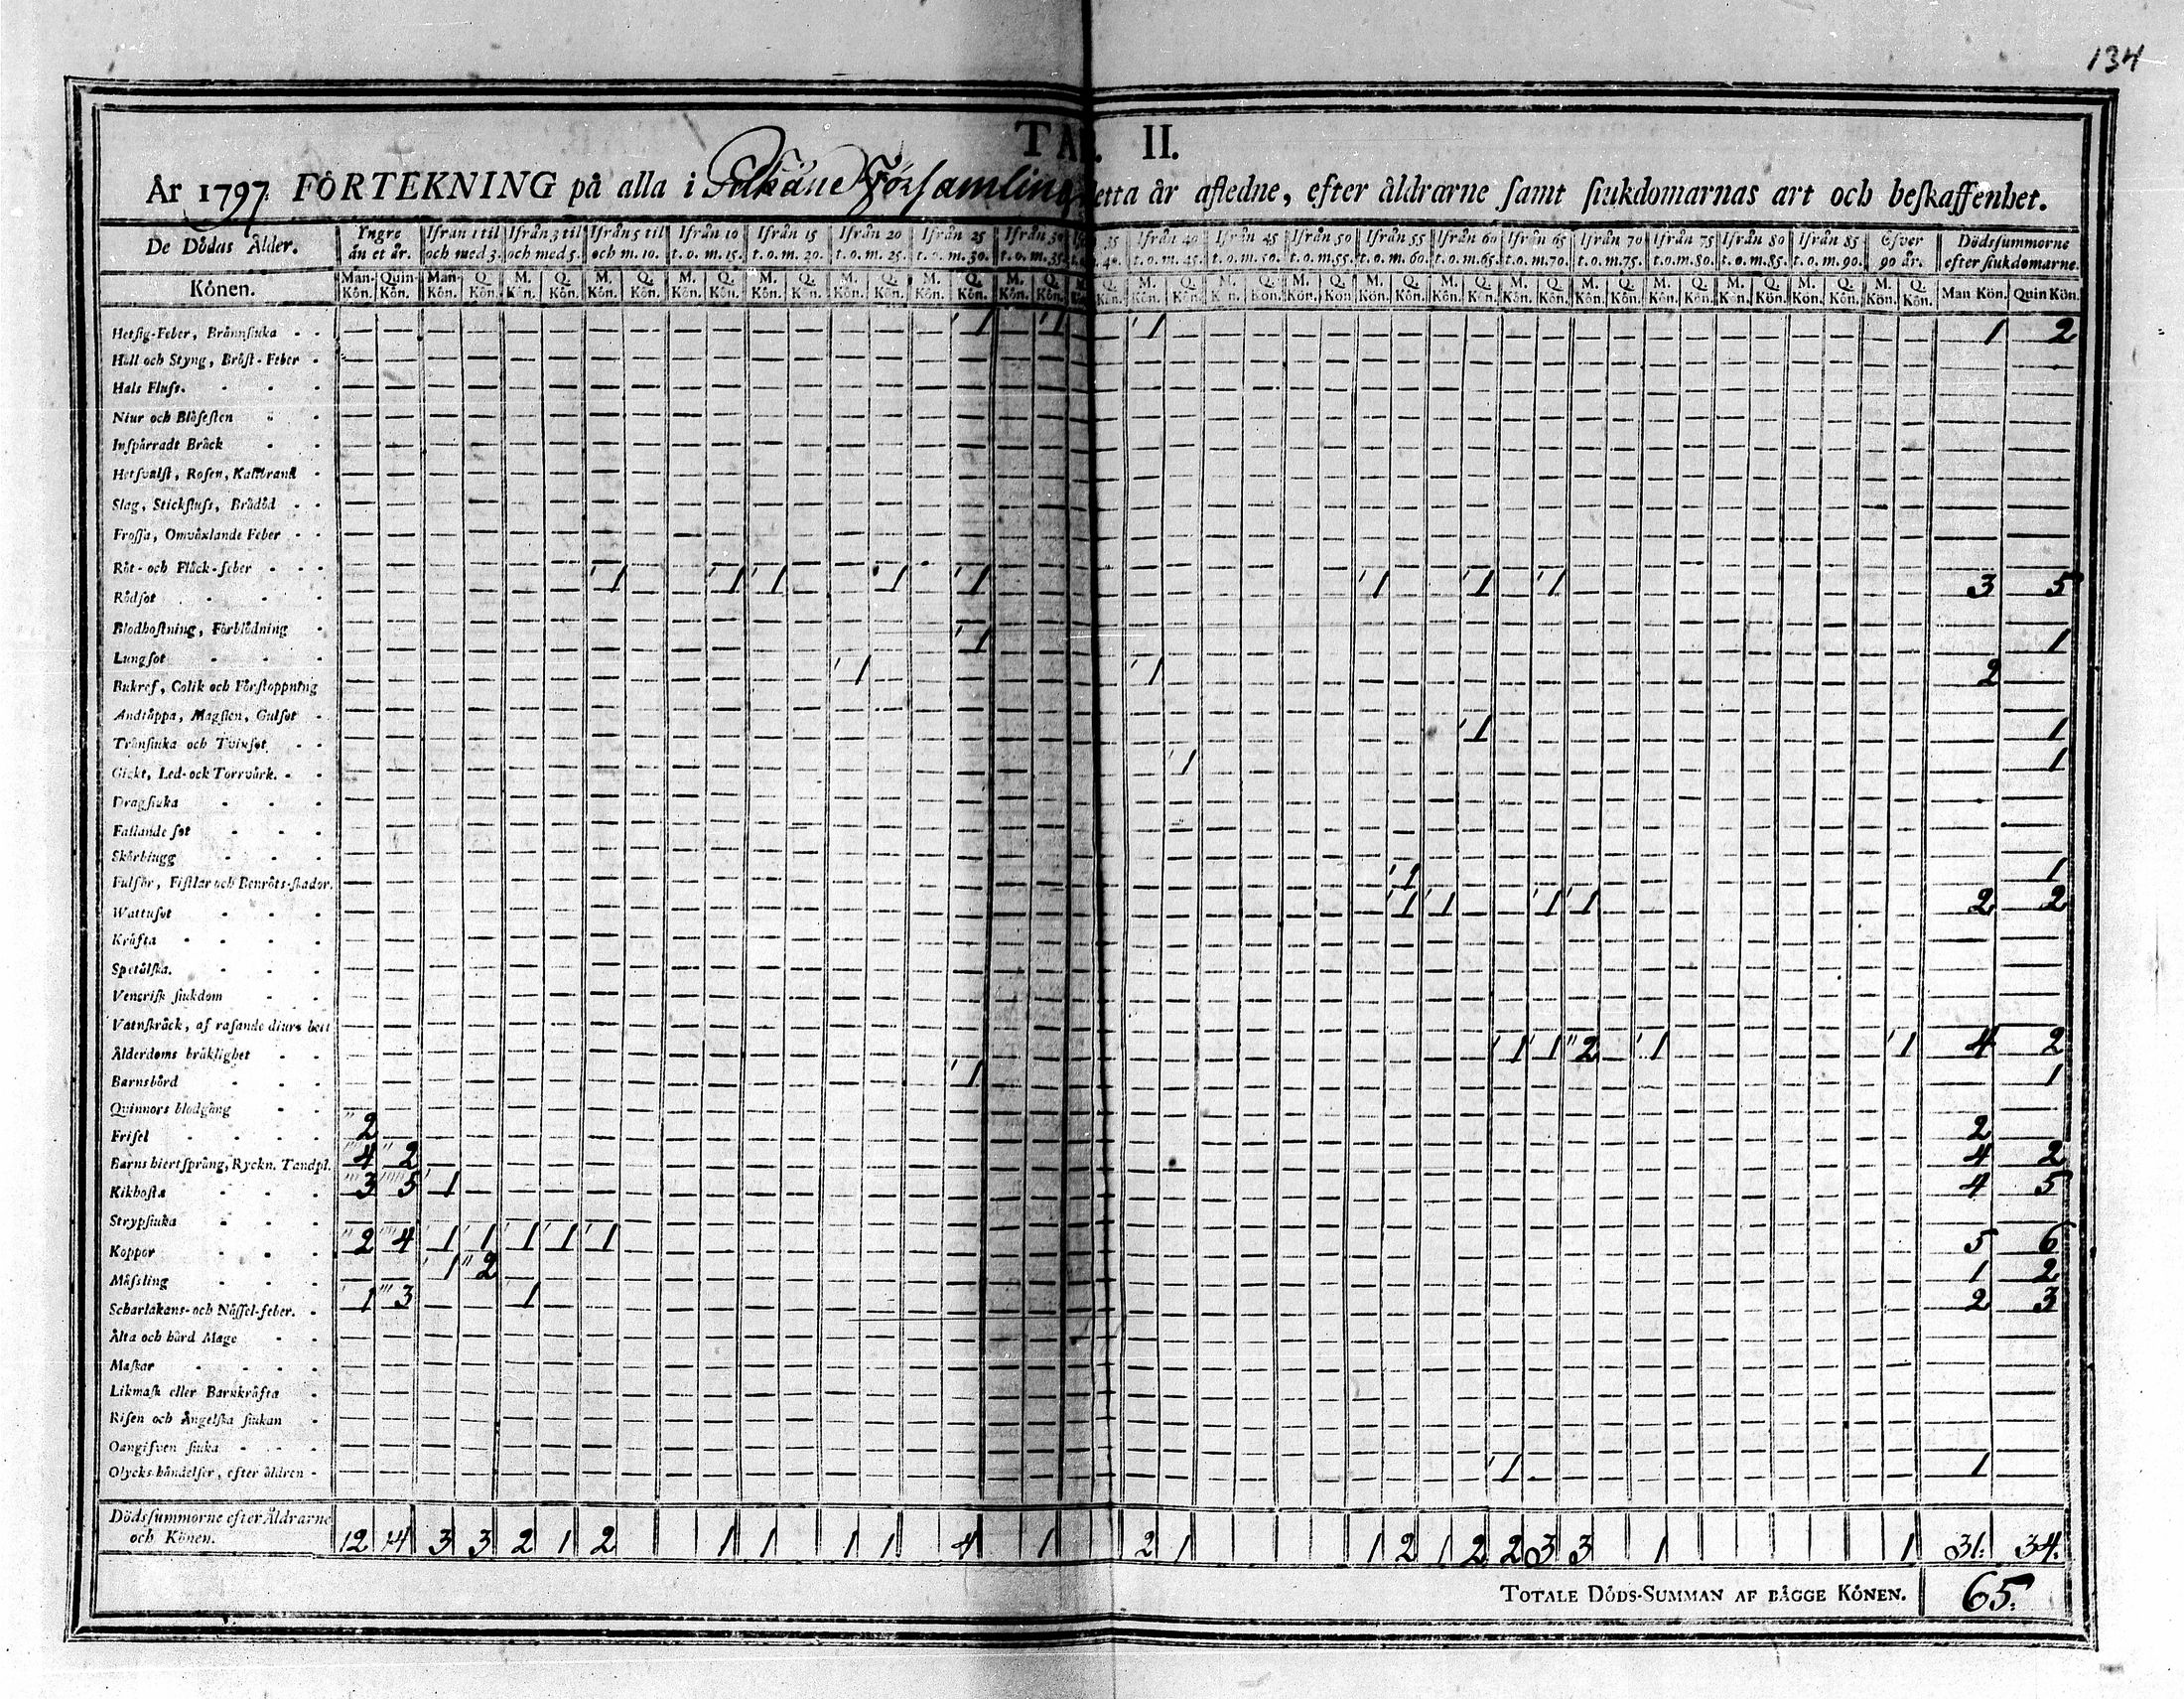 134
TAB. II.
År 1797. FÖRTEKNING på alla i Pälkäne Församling detta år afledne, efter åldrarne samt siukdomarnas art och beskaffenhet.
De Dödas Ålder. Yngre än et år. Ifrån 1 til och med 3. Ifrån 3 til och med 5. Ifrån 5 til och m. 10. Ifrån 10 t.o.m. 15. Ifrån 15 t.o.m. 20. Ifrån 20 t.o.m. 25. Ifrån 25 t.o.m. 30. Ifrån 30 t.o.m. 35. 35 40. Ifrån 40 t.o.m. 45. Ifrån 45 t.o.m. 50. Ifrån 50 t.o.m. 55. Ifrån 55 t.o.m. 60. Ifrån 60 t.o.m. 65. Ifrån 65 t.o.m. 70. Ifrån 70 t.o.m. 75. Ifrån 75 t.o.m. 80. Ifrån 80 t.o.m. 85. Ifrån 85 t.o.m. 90. Efver 90 år. Dödssummorne efter siukdomarne.
Könen. Man-Kön. Quin-Kön. Man-Kön. Q. Kön. M. Kön. Q. Kön. M. Kön. Q. Kön. M. Kön. Q. Kön. M. Kön. Q. Kön. M. Kön. Q. Kön. M. Kön. Q. Kön. M. Kön. Q. Kön. M. Q. Kön. M. Kön. Q. Kön. M. Kön. Q. Kön. M. Kön. Q. Kön. M. Kön. Q. Kön. M. Kön. Q. Kön. M. Kön. Q. Kön. M. Kön. Q. Kön. M. Kön. Q. Kön. M. Kön. Q. Kön. M. Kön. Q. Kön. M. Kön. Q. Kön. Man Kön. Quin Kön.
Hetsig-Feber, Brännsiuka 1 1 1 1 2
Håll och Styng, Bröst-Feber
Hals Fluss.
Niur och Blåsesten
Inspärradt Bråck
Hetsvulst, Rosen, Kallbrand
Slag, Stickfluss, Brådöd
Frossa, Omväxlande Feber
Röt- och Fläck-feber
Rödsot 1 1 1 1 1 1 1 1 3 5
Blodhostning, Förblödning
Lungsot 1 1
Bukref, Colik och Förstoppning 1 1 2
Andtäppa, Magsten, Gulsot
Trånsiuka och Tvinsot 1 1
Gickt, Led- och Torrvärk. 1 1
Dragsiuka
Fallande sot
Skörbiugg
Fulsår, Fistlar och Benröts-skador. 1 1
Wattusot 1 1 1 1 2 2
Kräfta
Spetälska.
Venerisk siukdom
Vatnskräck, af rasande diurs bett
Ålderdoms bräklighet 1 1 2 1 1 4 2
Barnsbörd 1 1
Quinnors blodgång
Frisel 2 2
Barns hiertsprång, Ryckn. Tandpl. 4 2 4 2
Kikhosta 3 5 1 4 5
Strypsiuka
Koppor 2 4 1 1 1 1 1 5 6
Mässling 1 2 1 2
Scharlakans- och Nässel-feber. 1 3 1 2 3
Älta och hård Mage
Maskar
Likmask eller Barnkräfta
Risen och Ängelska siukan
Oangifven siuka
Olycks-händelser, efter åldren 1 1
Dödssummorne efter Åldrarne och Könen. 12 14 3 3 2 1 2 1 1 1 1 4 1 2 1 1 2 1 2 2 3 3 1 1 31. 34.
TOTALE DÖDS-SUMMAN AF BÅGGE KÖNEN. 65.